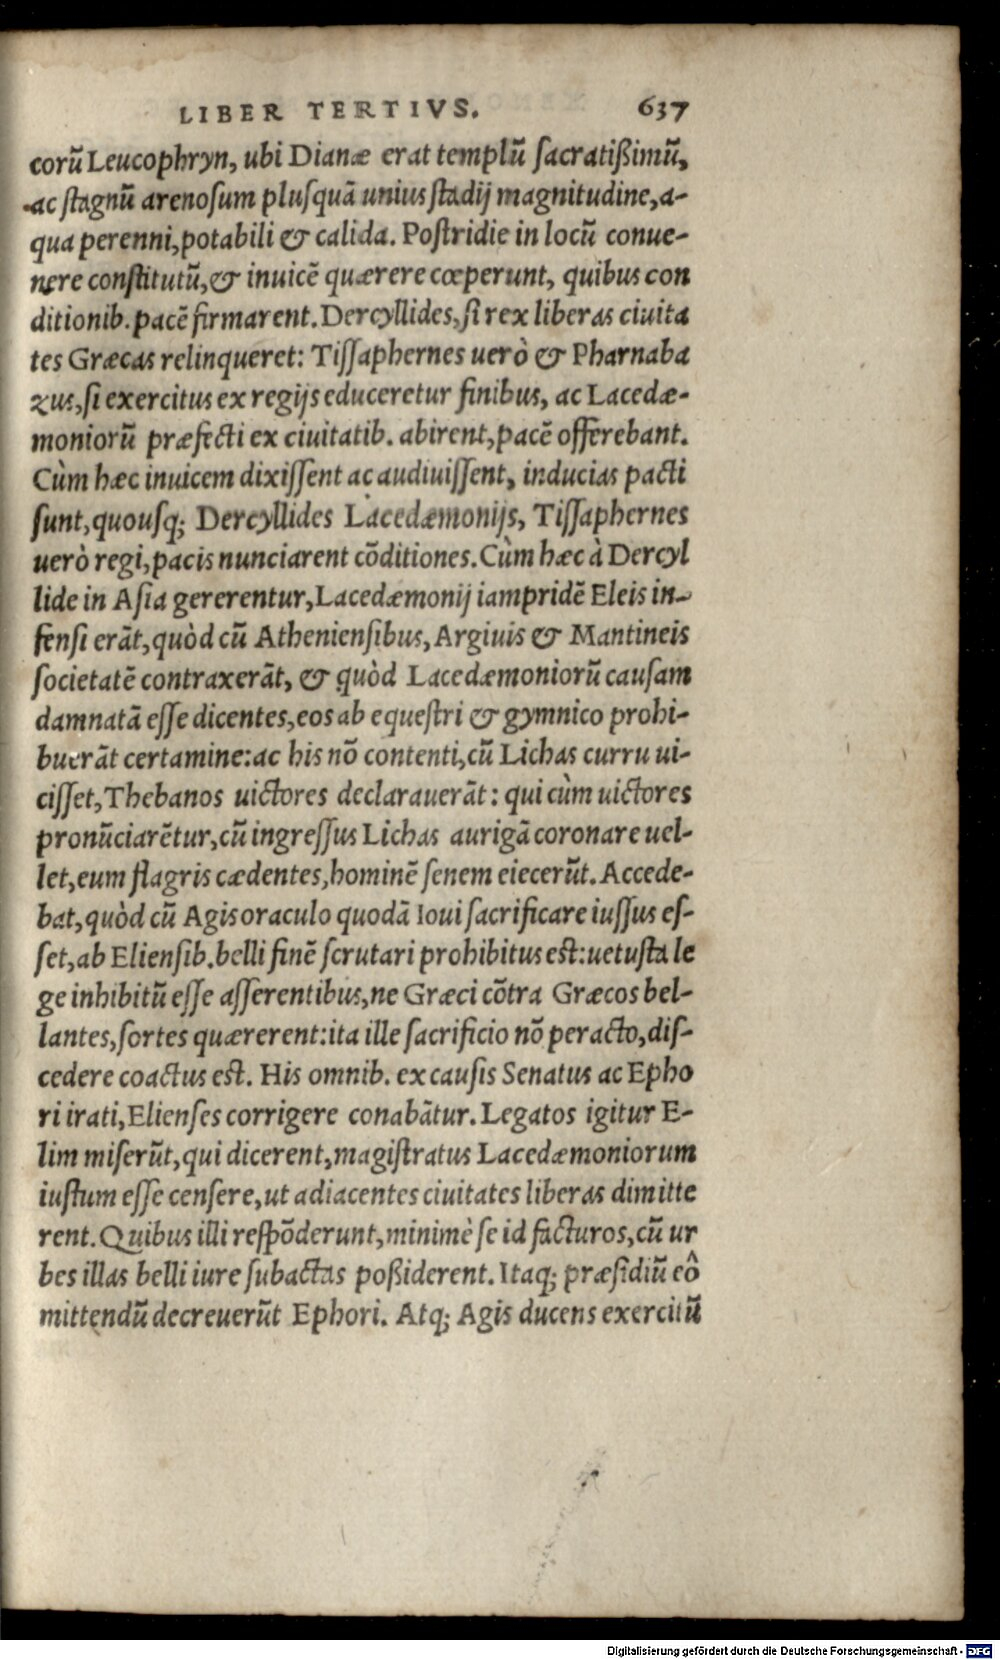 LIBER TERTIVS. 637
corũ Leucophryn, ubi Dianæ erat templũ sacratißimũ,
ac stagnũ arenosum plusquã unius stadij magnitudine, a-
qua perenni, potabili & calida. Postridie in locũ conue-
nere constitutũ, & inuicẽ quærere cœperunt, quibus con
ditionib. pacẽ firmarent. Dercyllides, si rex liberas ciuita
tes Græcas relinqueret: Tissaphernes uerò & Pharnaba
zus, si exercitus ex regijs educeretur finibus, ac Lacedæ-
moniorũ præfecti ex ciuitatib. abirent, pacẽ offerebant.
Cùm hæc inuicem dixissent ac audiuissent, inducias pacti
sunt, quousq; Dercyllides Lacedæmonijs, Tissaphernes
uerò regi, pacis nunciarent cõditiones. Cùm hæc à Dercyl
lide in Asia gererentur, Lacedæmonij iampridẽ Eleis in-
fensi erãt, quòd cũ Atheniensibus, Argiuis & Mantineis
societatẽ contraxerãt, & quòd Lacedæmoniorũ causam
damnatã esse dicentes, eos ab equestri & gymnico prohi-
buerãt certamine: ac his nõ contenti, cũ Lichas curru ui-
cisset, Thebanos uictores declarauerãt: qui cùm uictores
pronũciarẽtur, cũ ingressus Lichas aurigã coronare uel-
let, eum flagris cædentes, hominẽ senem eiecerũt. Accede-
bat, quòd cũ Agis oraculo quodã Ioui sacrificare iussus es-
set, ab Eliensib. belli finẽ scrutari prohibitus est: uetusta le
ge inhibitũ esse asserentibus, ne Græci cõtra Græcos bel-
lantes, sortes quærerent: ita ille sacrificio nõ peracto, dis-
cedere coactus est. His omnib. ex causis Senatus ac Epho
ri irati, Elienses corrigere conabãtur. Legatos igitur E-
lim miserũt, qui dicerent, magistratus Lacedæmoniorum
iustum esse censere, ut adiacentes ciuitates liberas dimitte
rent. Quibus illi respõderunt, minimè se id facturos, cũ ur
bes illas belli iure subactas poßiderent. Itaq; præsidiũ eô
mittendũ decreuerũt Ephori. Atq; Agis ducens exercitũ
Digitalisierung gefördert durch die Deutsche Forschungsgemeinschaft - DFG